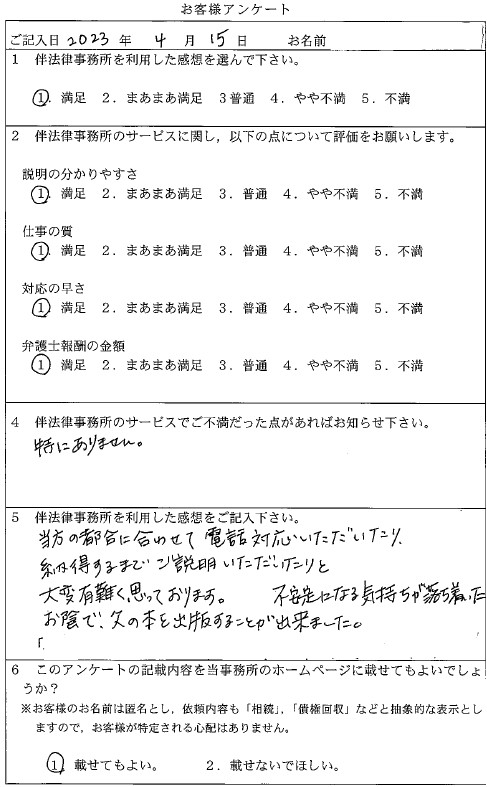 お客様アンケート
ご記入日 2023 年 4 月 15 日 お名前
1 伴法律事務所を利用した感想を選んで下さい。
1. 満足 2. まあまあ満足 3 普通 4. やや不満 5. 不満
2 伴法律事務所のサービスに関し，以下の点について評価をお願いします。
説明の分かりやすさ
1. 満足 2. まあまあ満足 3. 普通 4. やや不満 5. 不満
仕事の質
1. 満足 2. まあまあ満足 3. 普通 4. やや不満 5. 不満
対応の早さ
1. 満足 2. まあまあ満足 3. 普通 4. やや不満 5. 不満
弁護士報酬の金額
1 満足 2. まあまあ満足 3. 普通 4. やや不満 5. 不満
4 伴法律事務所のサービスでご不満だった点があればお知らせ下さい。
特にありません。
5 伴法律事務所を利用した感想をご記入下さい。
当方の都合に合わせて電話対応いただいたり、
納得するまでご説明いただいたりと
大変有難く思っております。 不安定になる気持ちが落ち着いた
お陰で、父の本を出版することが出来ました。
「.
6 このアンケートの記載内容を当事務所のホームページに載せてもよいでしょ
うか？
※お客様のお名前は匿名とし，依頼内容も「相続」，「債権回収」などと抽象的な表示とし
ますので，お客様が特定される心配はありません。
1. 載せてもよい。 2. 載せないでほしい。